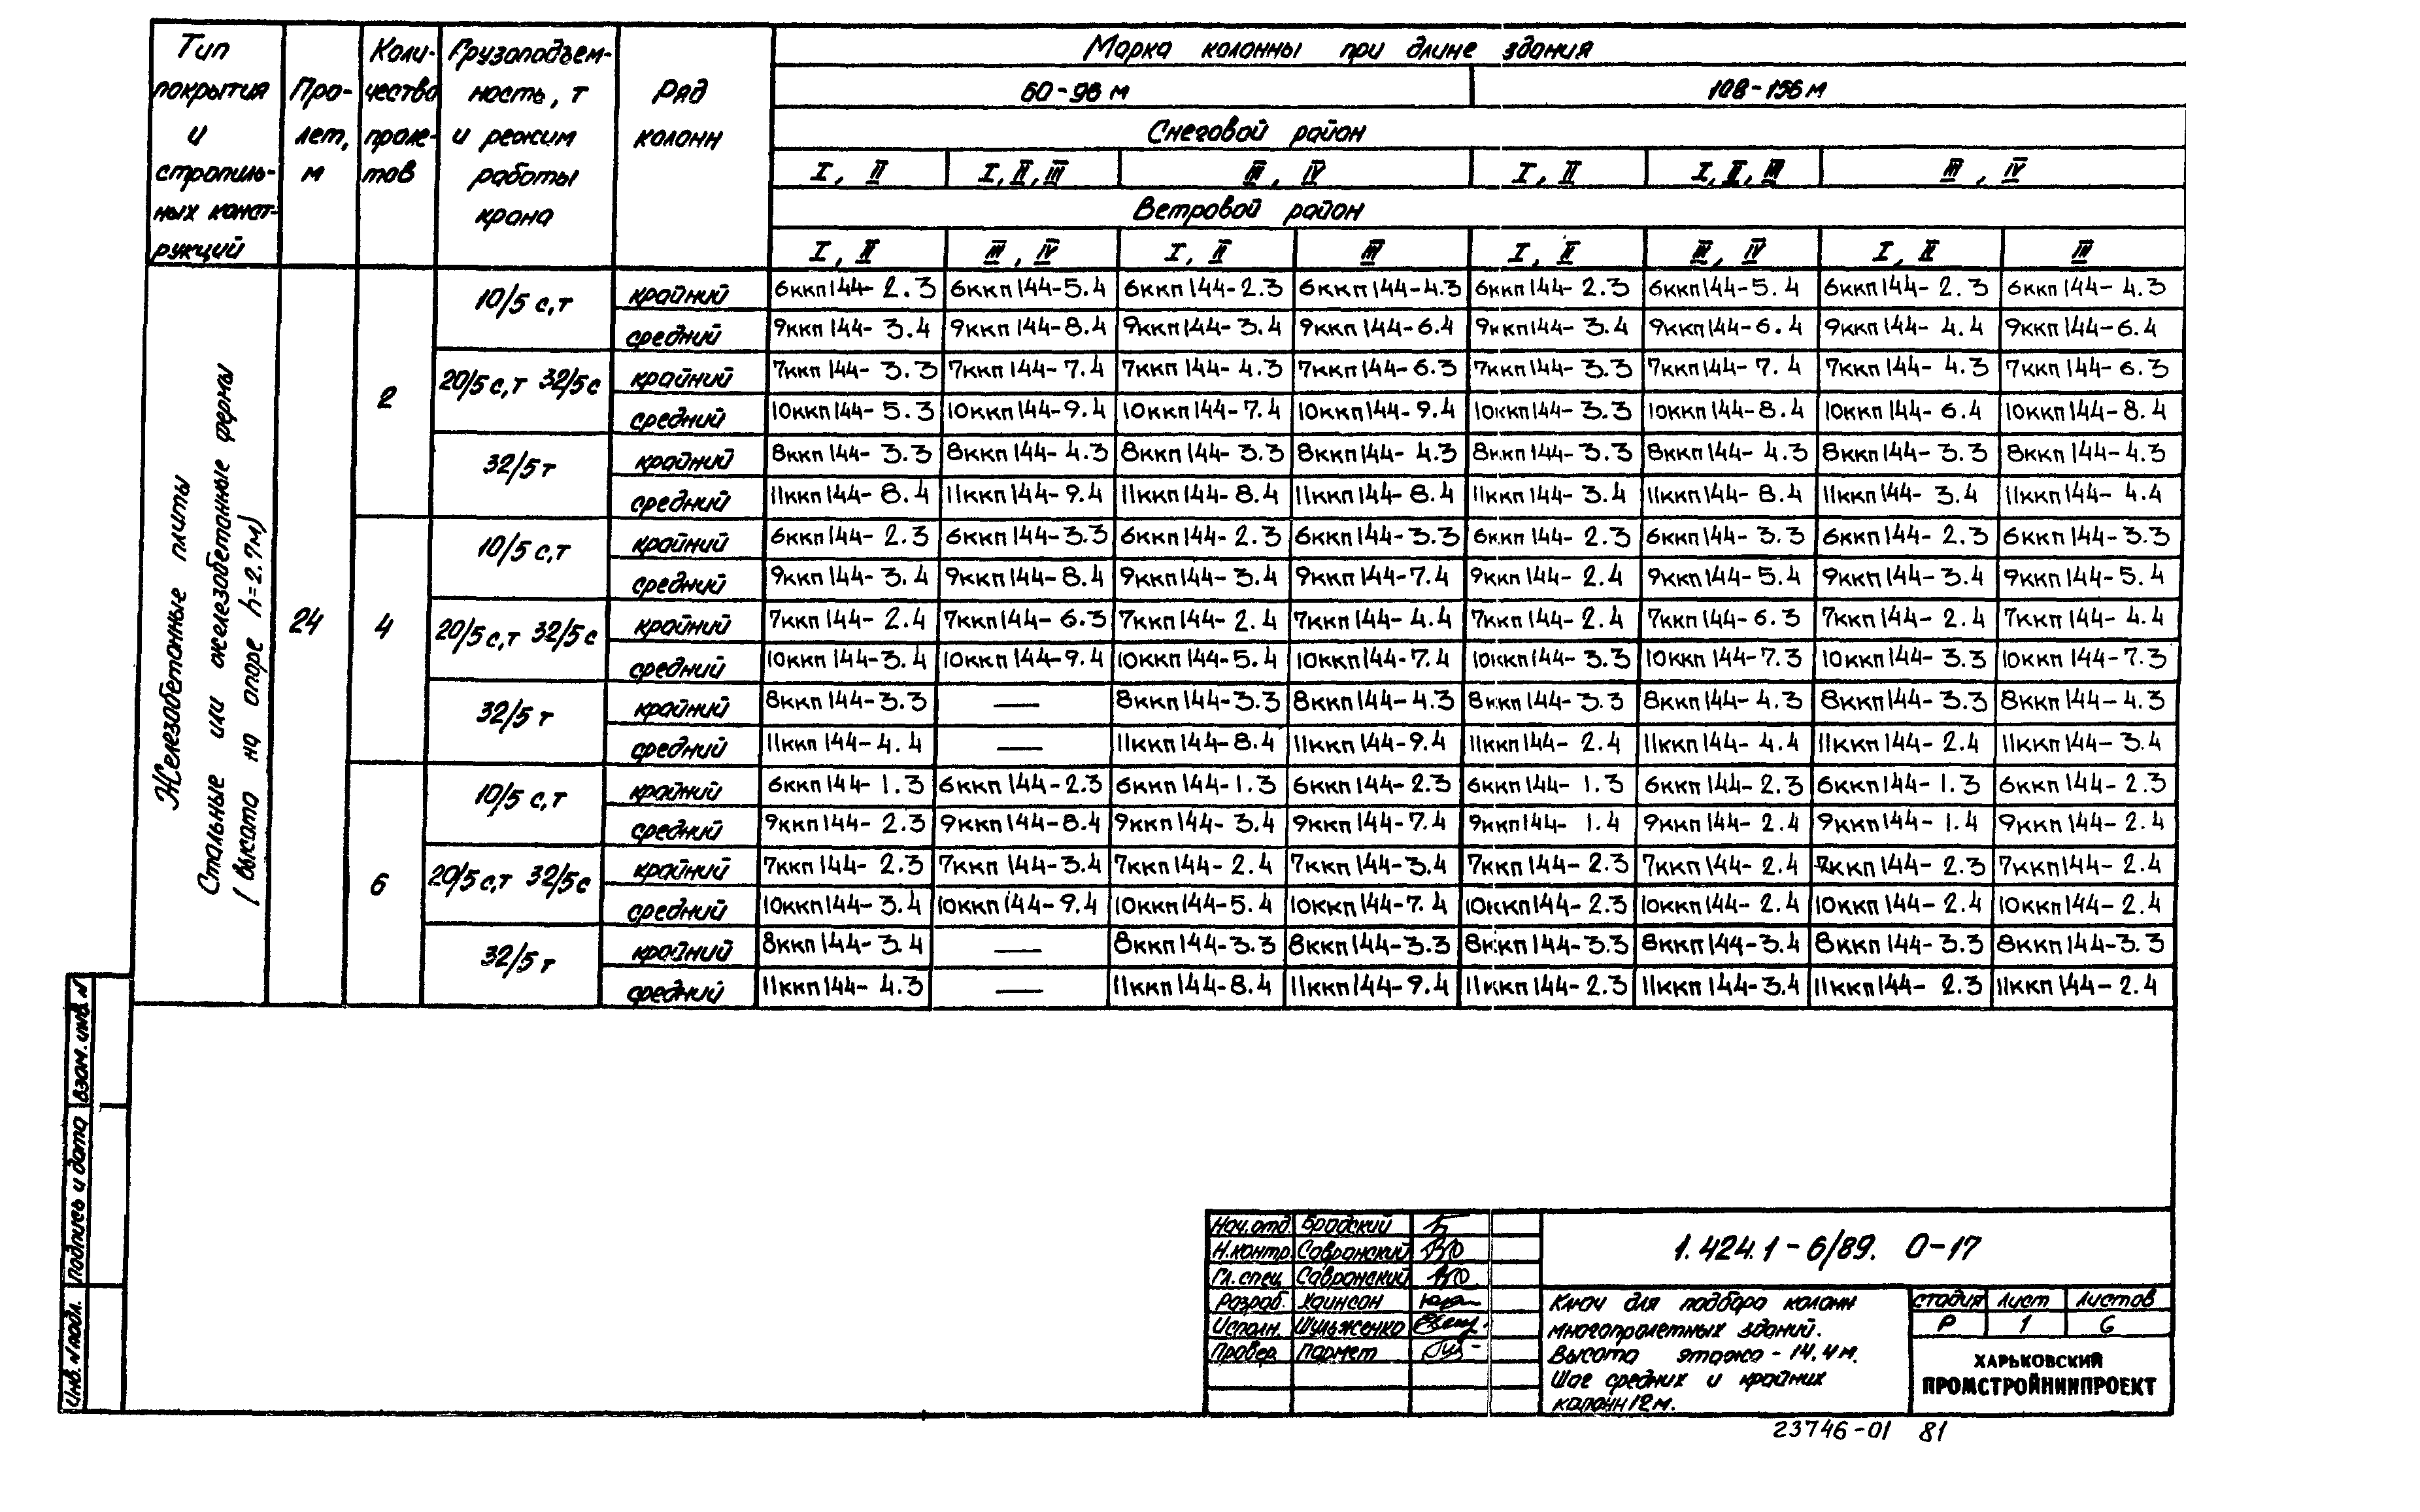 Тип покрытия и стропиль-ных конст-рукций
Про-лет, м
Коли-чество проле-тов
Грузоподъем-ность, т и режим работы крана
Ряд колонн
Марка колонны при длине здания
60-96 м 108-156 м
Снеговой район
I, II I, II, III III, IV I, II I, II, III III, IV
Ветровой район
I, II III, IV I, II III I, II III, IV I, II III
Железобетонные плиты
Стальные или железобетонные фермы
(высота на опоре h=2.7м)
24
2
10/5 с,т крайний 6ккп144-2.3 6ккп144-5.4 6ккп144-2.3 6ккп144-4.3 6ккп144-2.3 6ккп144-5.4 6ккп144-2.3 6ккп144-4.3
средний 9ккп144-3.4 9ккп144-8.4 9ккп144-3.4 9ккп144-6.4 9ккп144-3.4 9ккп144-6.4 9ккп144-4.4 9ккп144-6.4
20/5 с,т 32/5 с крайний 7ккп144-3.3 7ккп144-7.4 7ккп144-4.3 7ккп144-6.3 7ккп144-3.3 7ккп144-7.4 7ккп144-4.3 7ккп144-6.3
средний 10ккп144-5.3 10ккп144-9.4 10ккп144-7.4 10ккп144-9.4 10ккп144-3.3 10ккп144-8.4 10ккп144-6.4 10ккп144-8.4
32/5 т крайний 8ккп144-3.3 8ккп144-4.3 8ккп144-3.3 8ккп144-4.3 8ккп144-3.3 8ккп144-4.3 8ккп144-3.3 8ккп144-4.3
средний 11ккп144-8.4 11ккп144-9.4 11ккп144-8.4 11ккп144-8.4 11ккп144-3.4 11ккп144-8.4 11ккп144-3.4 11ккп144-4.4
4
10/5 с,т крайний 6ккп144-2.3 6ккп144-3.3 6ккп144-2.3 6ккп144-3.3 6ккп144-2.3 6ккп144-3.3 6ккп144-2.3 6ккп144-3.3
средний 9ккп144-3.4 9ккп144-8.4 9ккп144-3.4 9ккп144-7.4 9ккп144-2.4 9ккп144-5.4 9ккп144-3.4 9ккп144-5.4
20/5 с,т 32/5 с крайний 7ккп144-2.4 7ккп144-6.3 7ккп144-2.4 7ккп144-4.4 7ккп144-2.4 7ккп144-6.3 7ккп144-2.4 7ккп144-4.4
средний 10ккп144-3.4 10ккп144-9.4 10ккп144-5.4 10ккп144-7.4 10ккп144-3.3 10ккп144-7.3 10ккп144-3.3 10ккп144-7.3
32/5 т крайний 8ккп144-3.3 — 8ккп144-3.3 8ккп144-4.3 8ккп144-3.3 8ккп144-4.3 8ккп144-3.3 8ккп144-4.3
средний 11ккп144-4.4 — 11ккп144-8.4 11ккп144-9.4 11ккп144-2.4 11ккп144-4.4 11ккп144-2.4 11ккп144-3.4
6
10/5 с,т крайний 6ккп144-1.3 6ккп144-2.3 6ккп144-1.3 6ккп144-2.3 6ккп144-1.3 6ккп144-2.3 6ккп144-1.3 6ккп144-2.3
средний 9ккп144-2.3 9ккп144-8.4 9ккп144-3.4 9ккп144-7.4 9ккп144-1.4 9ккп144-2.4 9ккп144-1.4 9ккп144-2.4
20/5 с,т 32/5 с крайний 7ккп144-2.3 7ккп144-3.4 7ккп144-2.4 7ккп144-3.4 7ккп144-2.3 7ккп144-2.4 7ккп144-2.3 7ккп144-2.4
средний 10ккп144-3.4 10ккп144-9.4 10ккп144-5.4 10ккп144-7.4 10ккп144-2.3 10ккп144-2.4 10ккп144-2.4 10ккп144-2.4
32/5 т крайний 8ккп144-3.4 — 8ккп144-3.3 8ккп144-3.3 8ккп144-3.3 8ккп144-3.4 8ккп144-3.3 8ккп144-3.3
средний 11ккп144-4.3 — 11ккп144-8.4 11ккп144-9.4 11ккп144-2.3 11ккп144-3.4 11ккп144-2.3 11ккп144-2.4
Взам. инв. №
Подпись и дата
Инв. № подл.
Нач. отд. Брадский
Н. контр. Савранский
Гл. спец. Савранский
Разраб. Хаинсон
Исполн. Шульженко
Провер. Пармет
1.424.1-6/89. 0-17
Ключ для подбора колонн
многопролетных зданий.
Высота этажа - 14.4 м.
Шаг средних и крайних
колонн 12 м.
стадия лист листов
Р 1 6
ХАРЬКОВСКИЙ
ПРОМСТРОЙНИИПРОЕКТ
23746-01 81